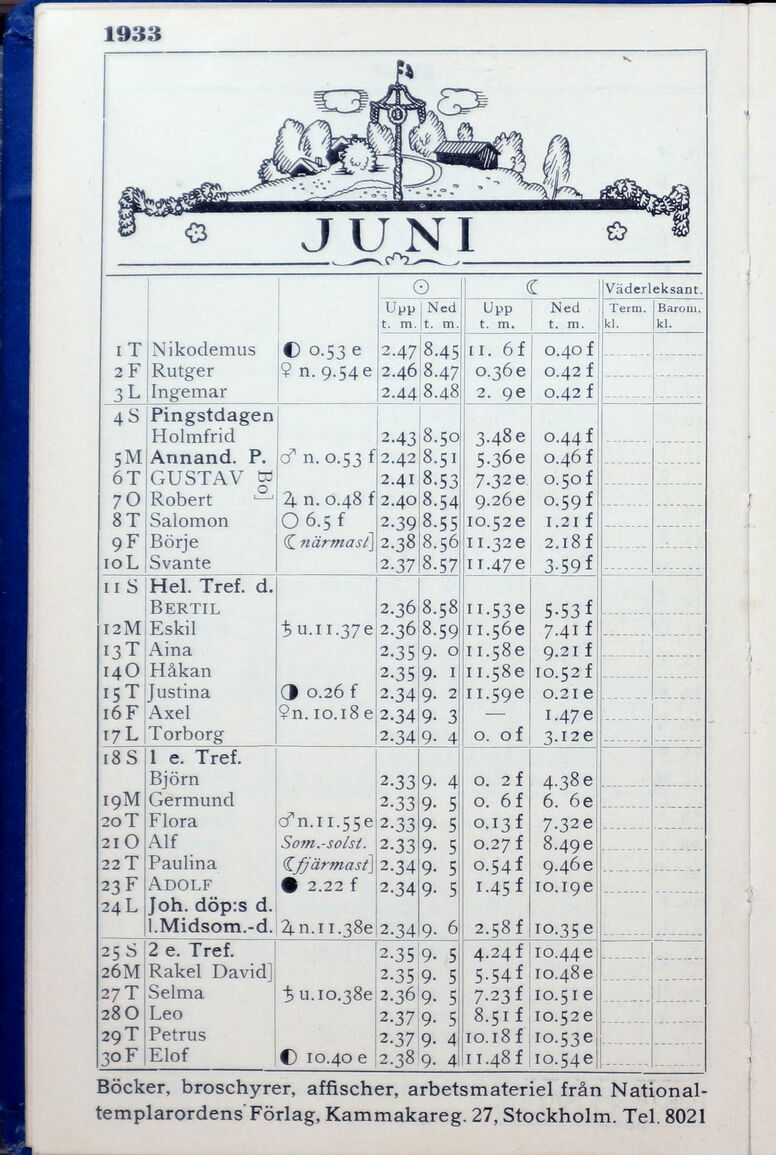 1933
JUNI
☉ ☾ Väderleksant.
Upp Ned Upp Ned Term. Barom.
t. m. t. m. t. m. t. m. kl. kl.
1 T Nikodemus ◐ 0.53 e 2.47 8.45 11. 6 f 0.40 f
2 F Rutger ♀ n. 9.54 e 2.46 8.47 0.36 e 0.42 f
3 L Ingemar 2.44 8.48 2. 9 e 0.42 f
4 S Pingstdagen
Holmfrid 2.43 8.50 3.48 e 0.44 f
5 M Annand. P. ♂ n. 0.53 f 2.42 8.51 5.36 e 0.46 f
6 T GUSTAV Bo] 2.41 8.53 7.32 e 0.50 f
7 O Robert ♃ n. 0.48 f 2.40 8.54 9.26 e 0.59 f
8 T Salomon ○ 6.5 f 2.39 8.55 10.52 e 1.21 f
9 F Börje ☾ närmast] 2.38 8.56 11.32 e 2.18 f
10 L Svante 2.37 8.57 11.47 e 3.59 f
11 S Hel. Tref. d.
BERTIL 2.36 8.58 11.53 e 5.53 f
12 M Eskil ♄ u. 11.37 e 2.36 8.59 11.56 e 7.41 f
13 T Aina 2.35 9. 0 11.58 e 9.21 f
14 O Håkan 2.35 9. 1 11.58 e 10.52 f
15 T Justina ◑ 0.26 f 2.34 9. 2 11.59 e 0.21 e
16 F Axel ♀ n. 10.18 e 2.34 9. 3 — 1.47 e
17 L Torborg 2.34 9. 4 0. 0 f 3.12 e
18 S 1 e. Tref.
Björn 2.33 9. 4 0. 2 f 4.38 e
19 M Germund 2.33 9. 5 0. 6 f 6. 6 e
20 T Flora ♂ n. 11.55 e 2.33 9. 5 0.13 f 7.32 e
21 O Alf Som.-solst. 2.33 9. 5 0.27 f 8.49 e
22 T Paulina ☾ fjärmast] 2.34 9. 5 0.54 f 9.46 e
23 F ADOLF ● 2.22 f 2.34 9. 5 1.45 f 10.19 e
24 L Joh. döp:s d.
l. Midsom.-d. ♃ n. 11.38 e 2.34 9. 6 2.58 f 10.35 e
25 S 2 e. Tref. 2.35 9. 5 4.24 f 10.44 e
26 M Rakel David] 2.35 9. 5 5.54 f 10.48 e
27 T Selma ♄ u. 10.38 e 2.36 9. 5 7.23 f 10.51 e
28 O Leo 2.37 9. 5 8.51 f 10.52 e
29 T Petrus 2.37 9. 4 10.18 f 10.53 e
30 F Elof ◐ 10.40 e 2.38 9. 4 11.48 f 10.54 e
Böcker, broschyrer, affischer, arbetsmateriel från National-
templarordens Förlag, Kammakareg. 27, Stockholm. Tel. 8021